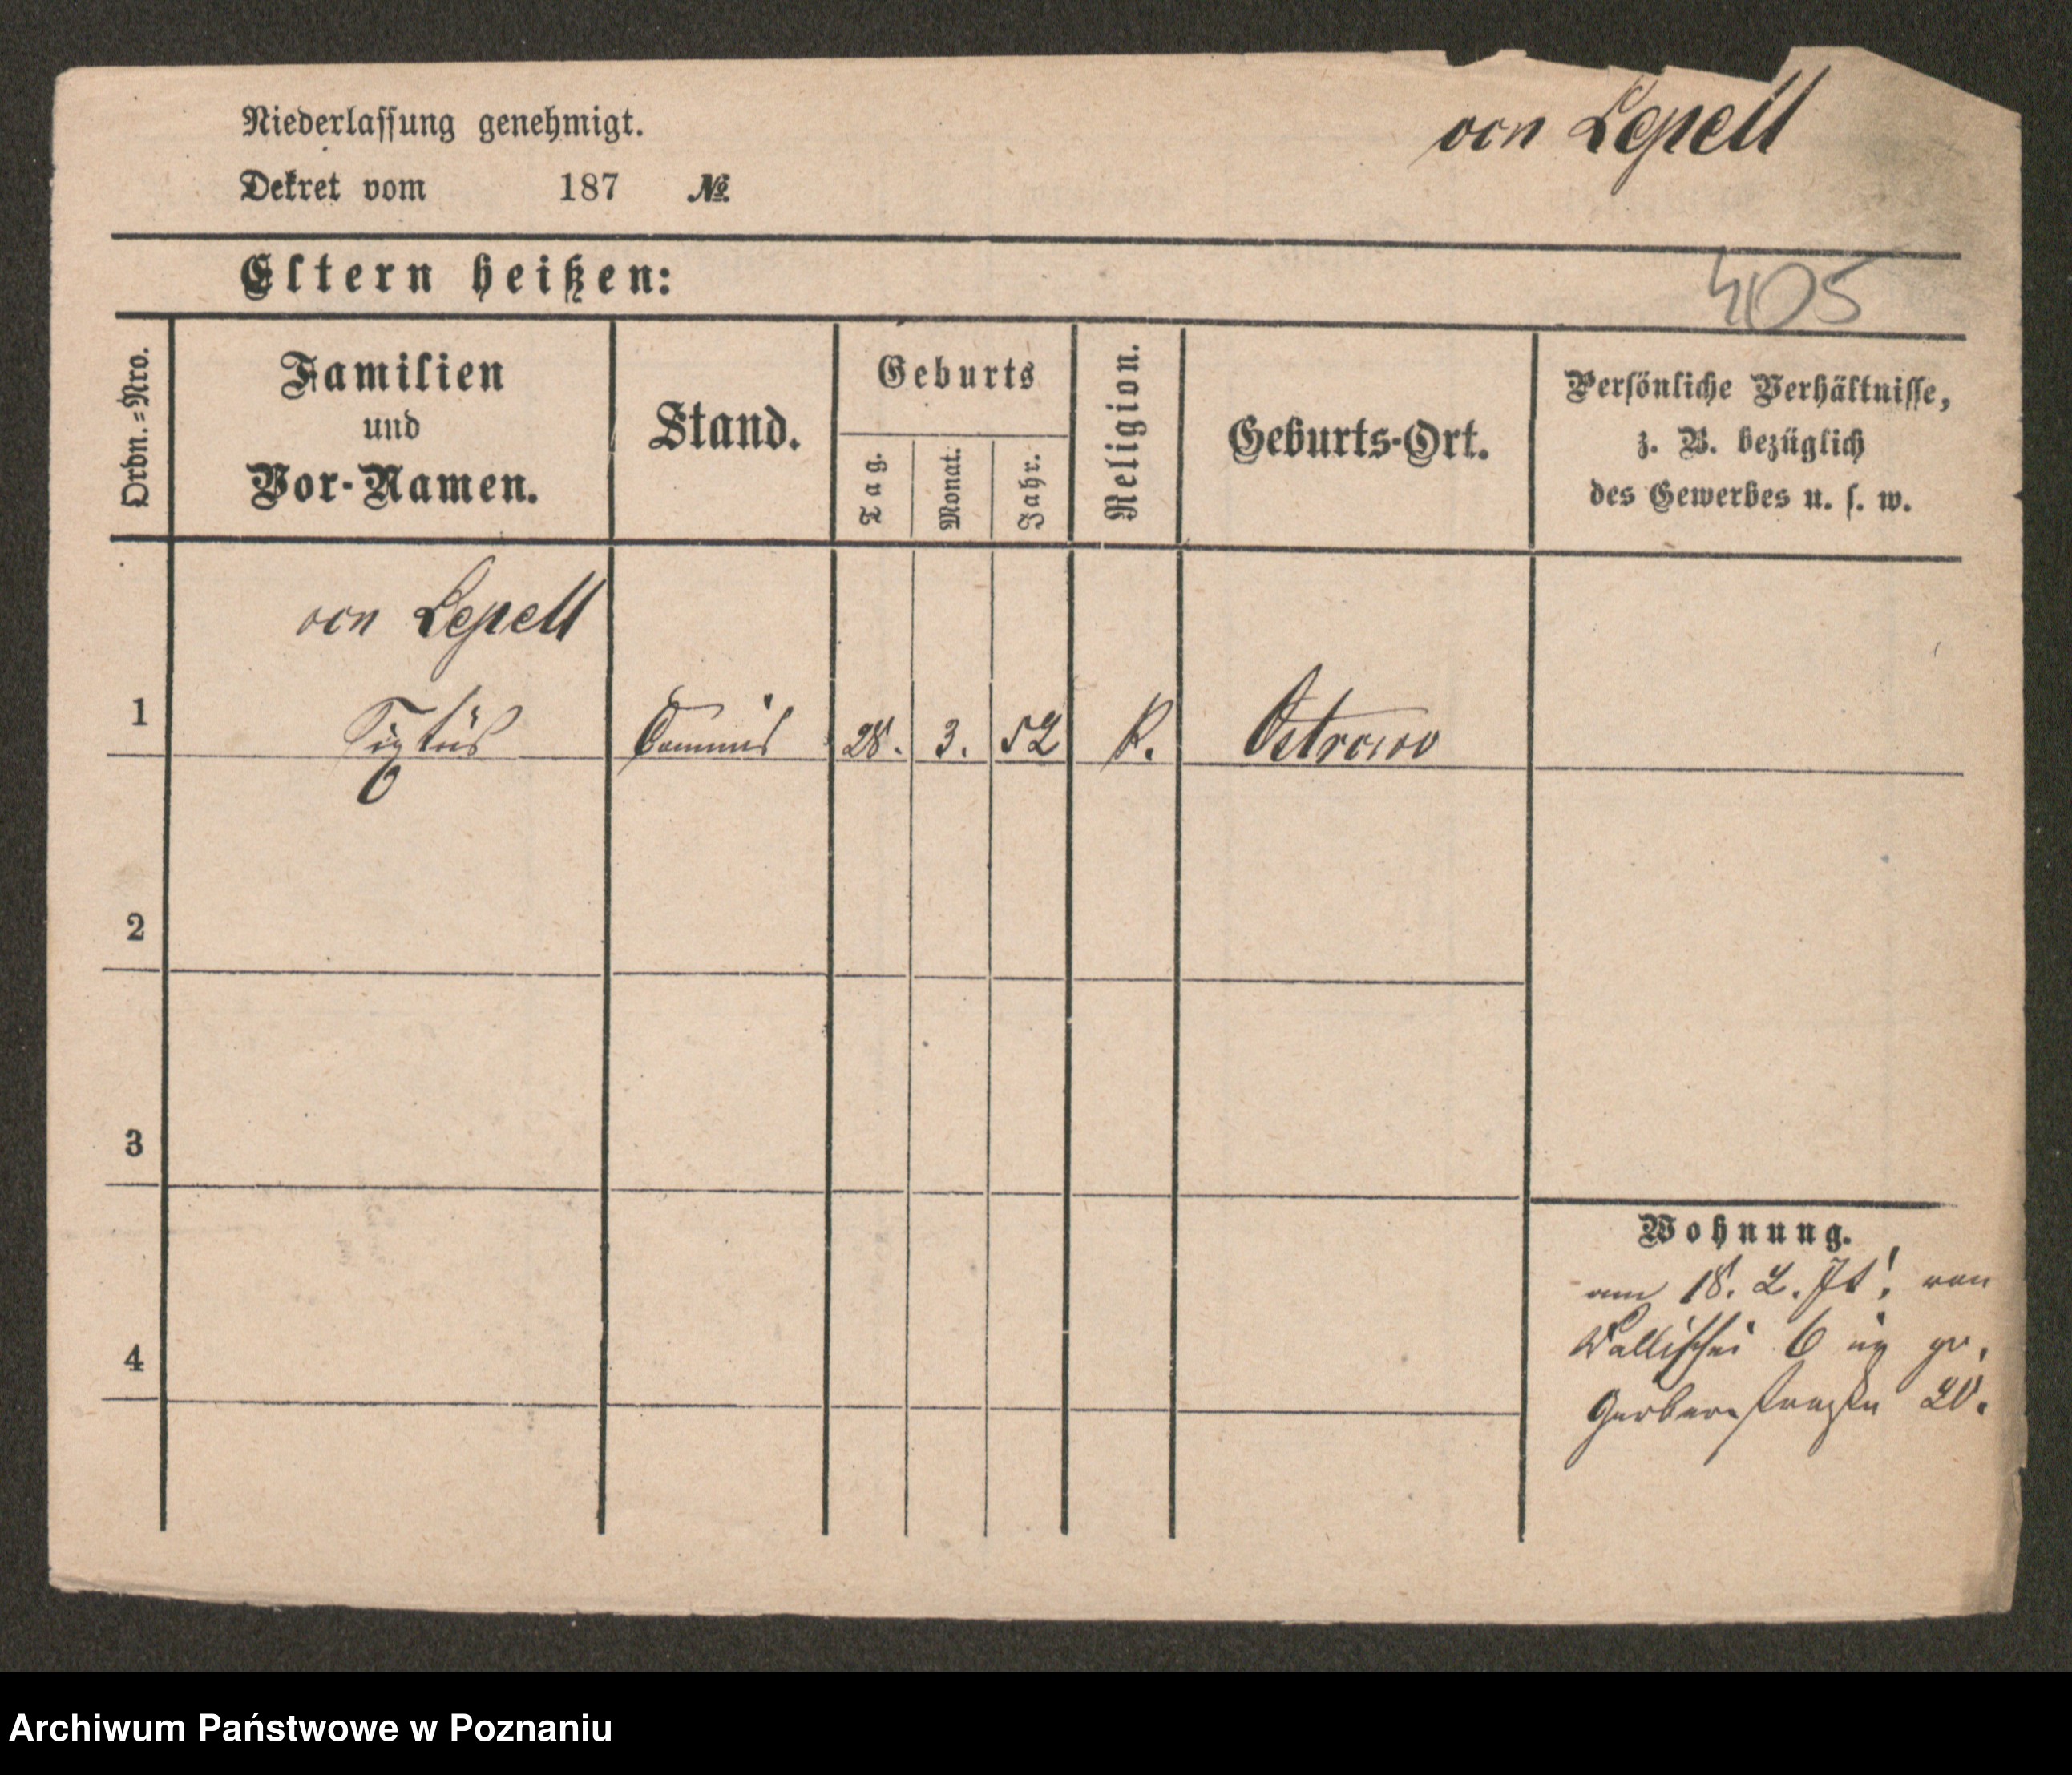 Niederlassung genehmigt.
von Lepell
Dekret vom 187 №
Eltern heißen:
405
Ordn.=Nro.
Familien
und
Vor-Namen.
Stand.
Geburts
Tag.
Monat.
Jahr.
Religion.
Geburts-Ort.
Persönliche Verhältnisse,
z. B. bezüglich
des Gewerbes u. s. w.
von Lepell
1 Sixtus Commis 28. 3. 52 K. Ostrowo
2
3
4
Wohnung.
am 18. 2. von
Wallischei 6 gr.
Gerberstraße 20.
Archiwum Państwowe w Poznaniu